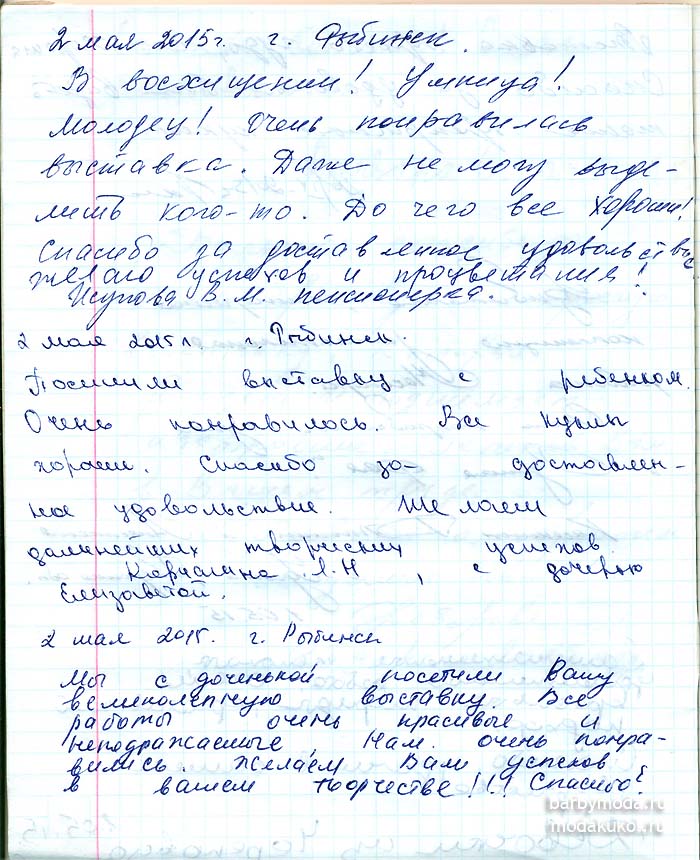 2 мая 2015г. г. Рыбинск.
В восхищении! Умница!
Молодец! Очень понравилась
выставка. Даже не могу выде-
лить кого-то. До чего все хороши!
Спасибо за доставленное удовольствие
желаю успехов и процветания!
Исупова В.М. пенсионерка.
2 мая 2015 г. г. Рыбинск.
Посетили выставку с ребенком.
Очень понравилось. Все куклы
хороши. Спасибо за доставлен-
ное удовольствие. Желаем
дальнейших творческих успехов
Л.Н, с дочерью
Елизаветой.
2 мая 2015г. г. Рыбинск
Мы с доченькой посетили Вашу
великолепную выставку. Все
работы очень красивые и
неподражаемые, Нам очень понра-
вились. Желаем Вам успехов
в вашем творчестве!!! Спасибо!
barbymoda.ru
modakukol.ru